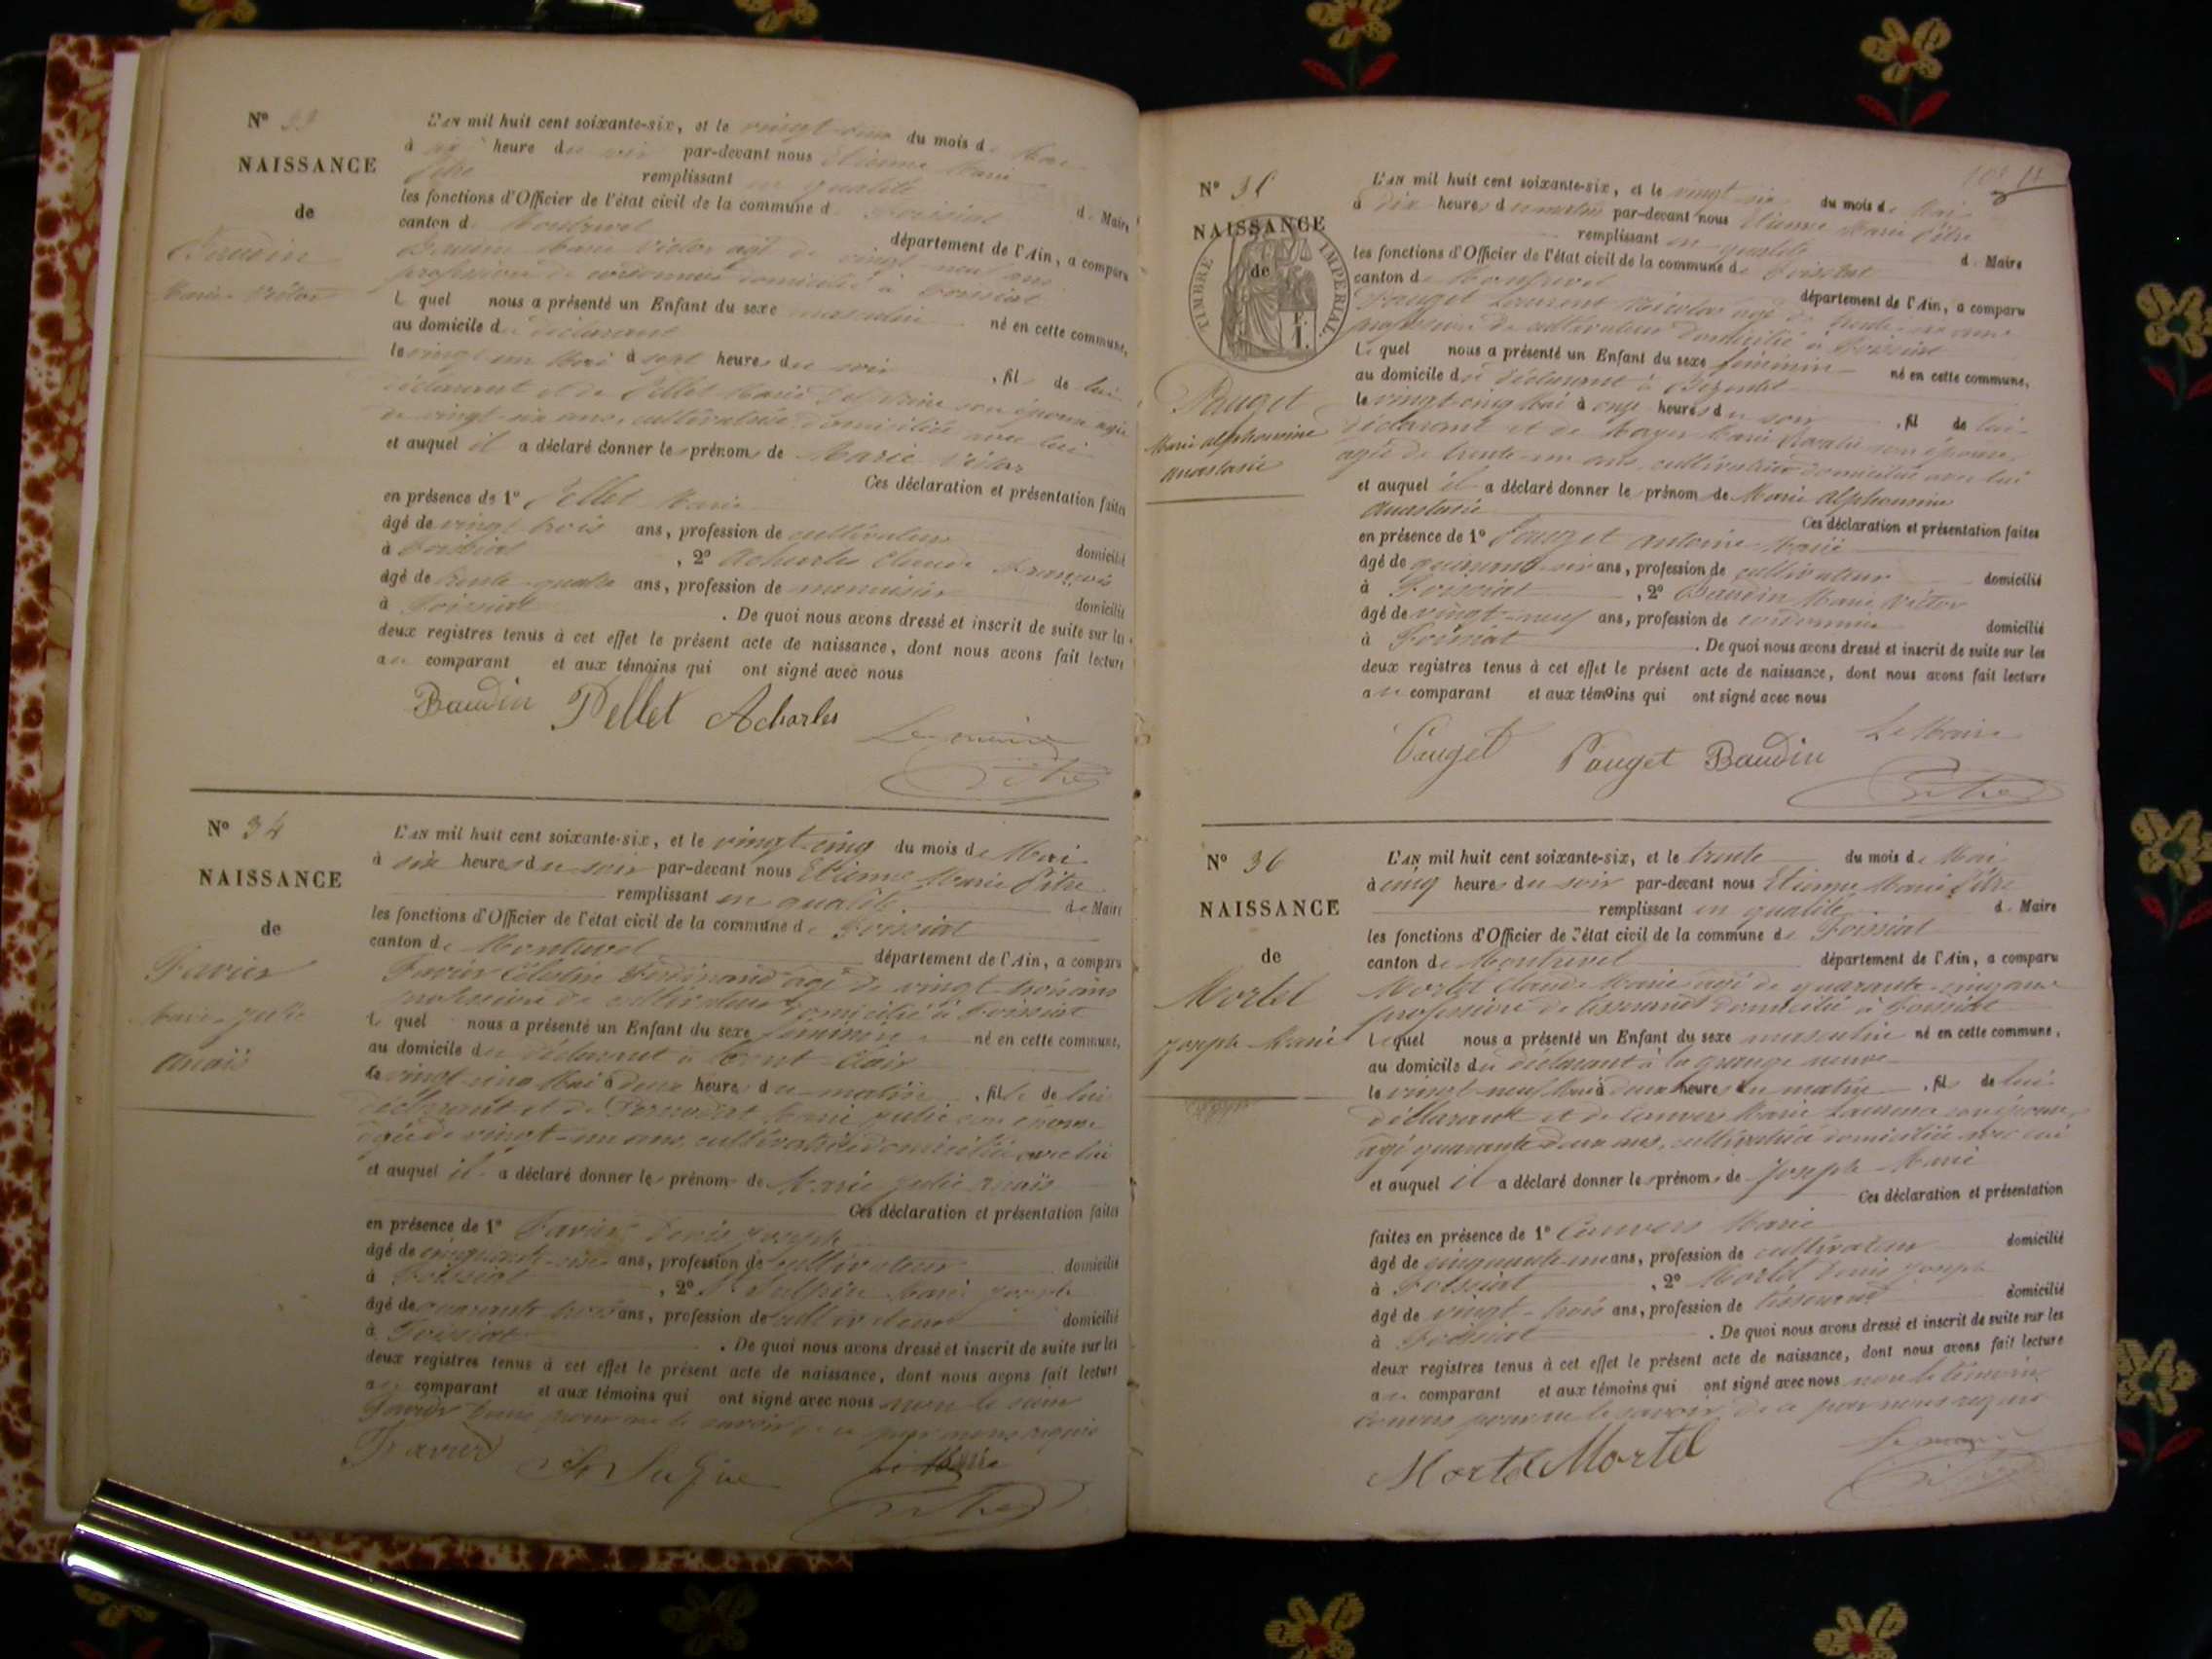 N° 33
NAISSANCE
de
Baudin
Marie Victor
L'AN mil huit cent soixante-six, et le vingt-deux du mois de Mai
à heure du soir par-devant nous Etienne Marie
Pitre remplissant en qualité de Maire
les fonctions d'Officier de l'état civil de la commune de Foissiat
canton de Montrevel département de l'Ain, a comparu
Baudin Marie Victor âgé de vingt-neuf ans
profession de cordonnier domicilié à Foissiat
Lequel nous a présenté un Enfant du sexe masculin né en cette commune,
au domicile du déclarant
le vingt un Mai à sept heures du soir, fils de lui
déclarant et de Pellet Marie son épouse âgée
de vingt-six ans, cultivatrice domiciliée avec lui
et auquel il a déclaré donner les prénoms de Marie Victor
Ces déclaration et présentation faites
en présence de 1° Pellet Marie
âgé de vingt trois ans, profession de cultivateur domicilié
à Foissiat, 2° Acharles Claude François
âgé de trente-quatre ans, profession de menuisier domicilié
à Foissiat. De quoi nous avons dressé et inscrit de suite sur les
deux registres tenus à cet effet le présent acte de naissance, dont nous avons fait lecture
au comparant et aux témoins qui ont signé avec nous
Baudin Pellet Acharles
Le maire
Pitre
N° 34
NAISSANCE
de
Favier
Marie Julie
Anaïs
L'AN mil huit cent soixante-six, et le vingt-cinq du mois de Mai
à six heures du soir par-devant nous Etienne Marie Pitre
remplissant en qualité de Maire
les fonctions d'Officier de l'état civil de la commune de Foissiat
canton de Montrevel département de l'Ain, a comparu
Favier Célestin Ferdinand âgé de vingt-trois ans
profession de cultivateur domicilié à Foissiat
Lequel nous a présenté un Enfant du sexe féminin né en cette commune,
au domicile du déclarant à
le vingt-cinq Mai à deux heures du matin, fille de lui
déclarant et de Marie Julie son épouse
âgée de vingt-un ans, cultivatrice domiciliée avec lui
et auquel il a déclaré donner les prénoms de Marie Julie Anaïs
Ces déclaration et présentation faites
en présence de 1° Favier Denis Joseph
âgé de ans, profession de cultivateur domicilié
à Foissiat, 2° St Sulpice Marie Joseph
âgé de quarante trois ans, profession de cultivateur domicilié
à Foissiat. De quoi nous avons dressé et inscrit de suite sur les
deux registres tenus à cet effet le présent acte de naissance, dont nous avons fait lecture
au comparant et aux témoins qui ont signé avec nous non le
Favier Denis pour ne le savoir de ce par nous requis
Favier
Le Maire
Pitre
N° 35
NAISSANCE
de
TIMBRE IMPERIAL
F.
1.
Pauget
Marie alphonsine
anastasie
L'AN mil huit cent soixante-six, et le vingt-six du mois de Mai
à dix heures du matin par-devant nous Etienne Marie Pitre
remplissant en qualité de Maire
les fonctions d'Officier de l'état civil de la commune de Foissiat
canton de Montrevel département de l'Ain, a comparu
Pauget Laurent Nicolas âgé de trente- ans
profession de cultivateur domicilié à Foissiat
Lequel nous a présenté un Enfant du sexe féminin né en cette commune,
au domicile du déclarant à
le vingt-cinq Mai à onze heures du soir, fil de lui
déclarant et de Marie son épouse
âgée de trente-un ans, cultivatrice domiciliée avec lui
et auquel il a déclaré donner le prénom de Marie alphonsine
anastasie Ces déclaration et présentation faites
en présence de 1° Pauget antoine Marie
âgé de ans, profession de cultivateur domicilié
à Foissiat, 2° Baudin Marie Victor
âgé de vingt-neuf ans, profession de cordonnier domicilié
à Foissiat. De quoi nous avons dressé et inscrit de suite sur les
deux registres tenus à cet effet le présent acte de naissance, dont nous avons fait lecture
au comparant et aux témoins qui ont signé avec nous
Pauget Pauget Baudin
Le Maire
Pitre
N° 36
NAISSANCE
de
Mortel
Joseph Marie
L'AN mil huit cent soixante-six, et le trente du mois de Mai
à cinq heures du soir par-devant nous Etienne Marie Pitre
remplissant en qualité de Maire
les fonctions d'Officier de l'état civil de la commune de Foissiat
canton de Montrevel département de l'Ain, a comparu
Mortel Claude Marie âgé de quarante-cinq ans
profession de tisserand domicilié à Foissiat
Lequel nous a présenté un Enfant du sexe masculin né en cette commune,
au domicile du déclarant à la grange neuve
le vingt-neuf Mai à deux heures du matin, fils de lui
déclarant et de Convers Marie son épouse
âgé quarante deux ans, cultivatrice domiciliée avec lui
et auquel il a déclaré donner les prénoms de Joseph Marie
Ces déclaration et présentation
faites en présence de 1° Convers Marie
âgé de cinquante-un ans, profession de cultivateur domicilié
à Foissiat, 2° Mortel Denis Joseph
âgé de vingt-trois ans, profession de tisserand domicilié
à Foissiat. De quoi nous avons dressé et inscrit de suite sur les
deux registres tenus à cet effet le présent acte de naissance, dont nous avons fait lecture
au comparant et aux témoins qui ont signé avec nous non le témoin
Convers pour ne le savoir de ce par nous requis
Mortel Mortel
Le maire
Pitre